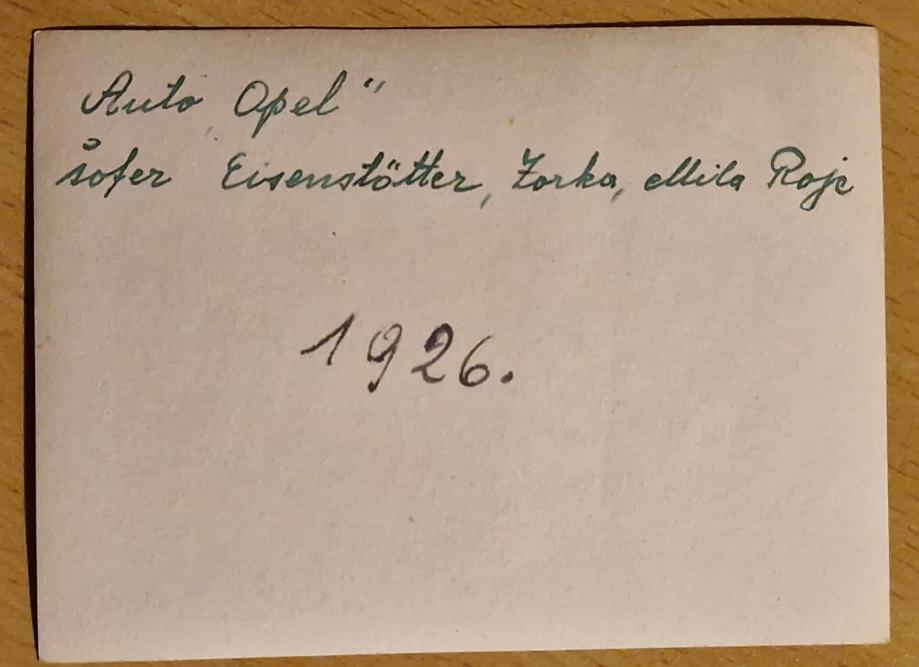 Auto „Opel“
šofer Eisenstätter, Zorka, Mila Roje
1926.